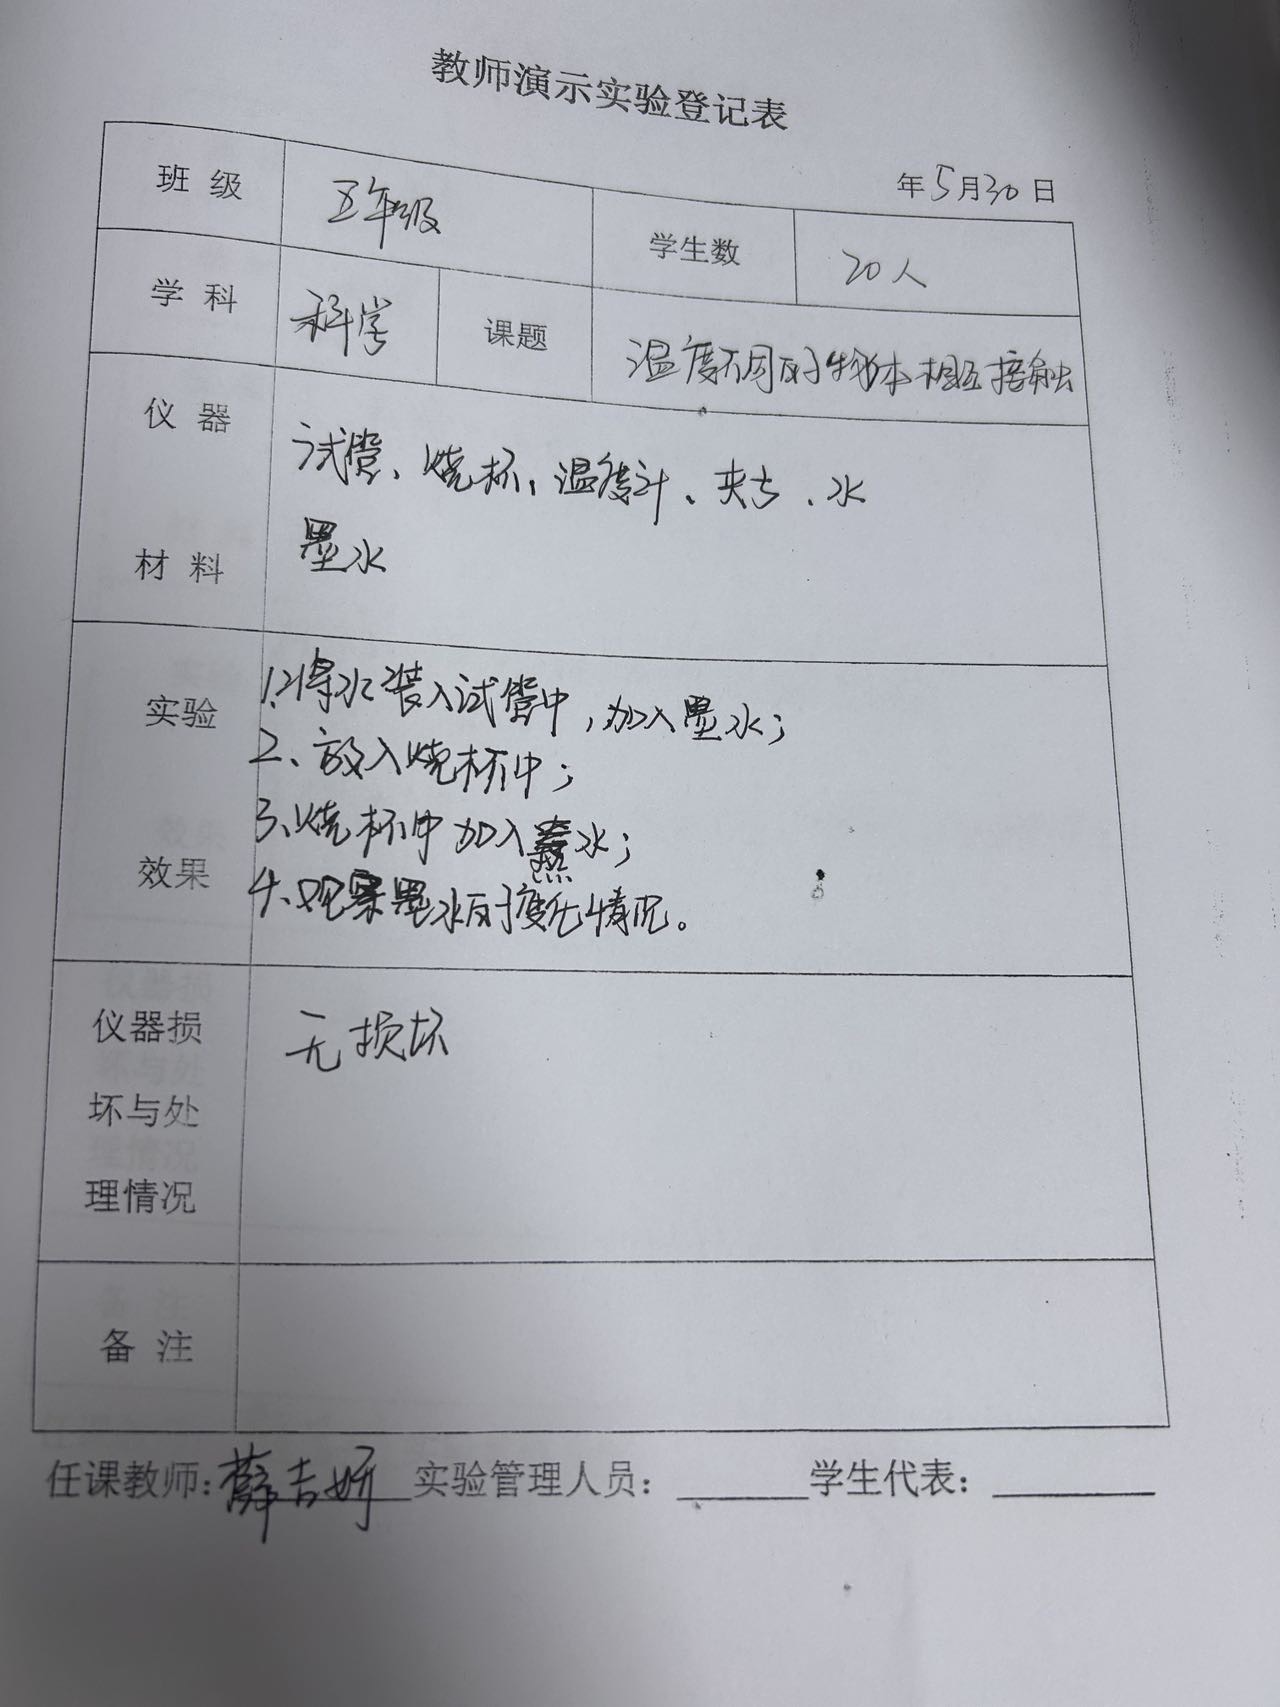 教师演示实验登记表
年5月30日
班 级 五年级 学生数 20人
学 科 科学 课题 温度不同的物体相互接触
仪 器
试管、烧杯、温度计、夹子、水
墨水
材 料
实验
1、将水装入试管中,加入墨水;
2、放入烧杯中;
3、烧杯中加入热水;
效果
4、观察墨水的变化情况。
仪器损
坏与处
理情况
无损坏
备 注
任课教师:薛吉妍 实验管理人员: 学生代表: